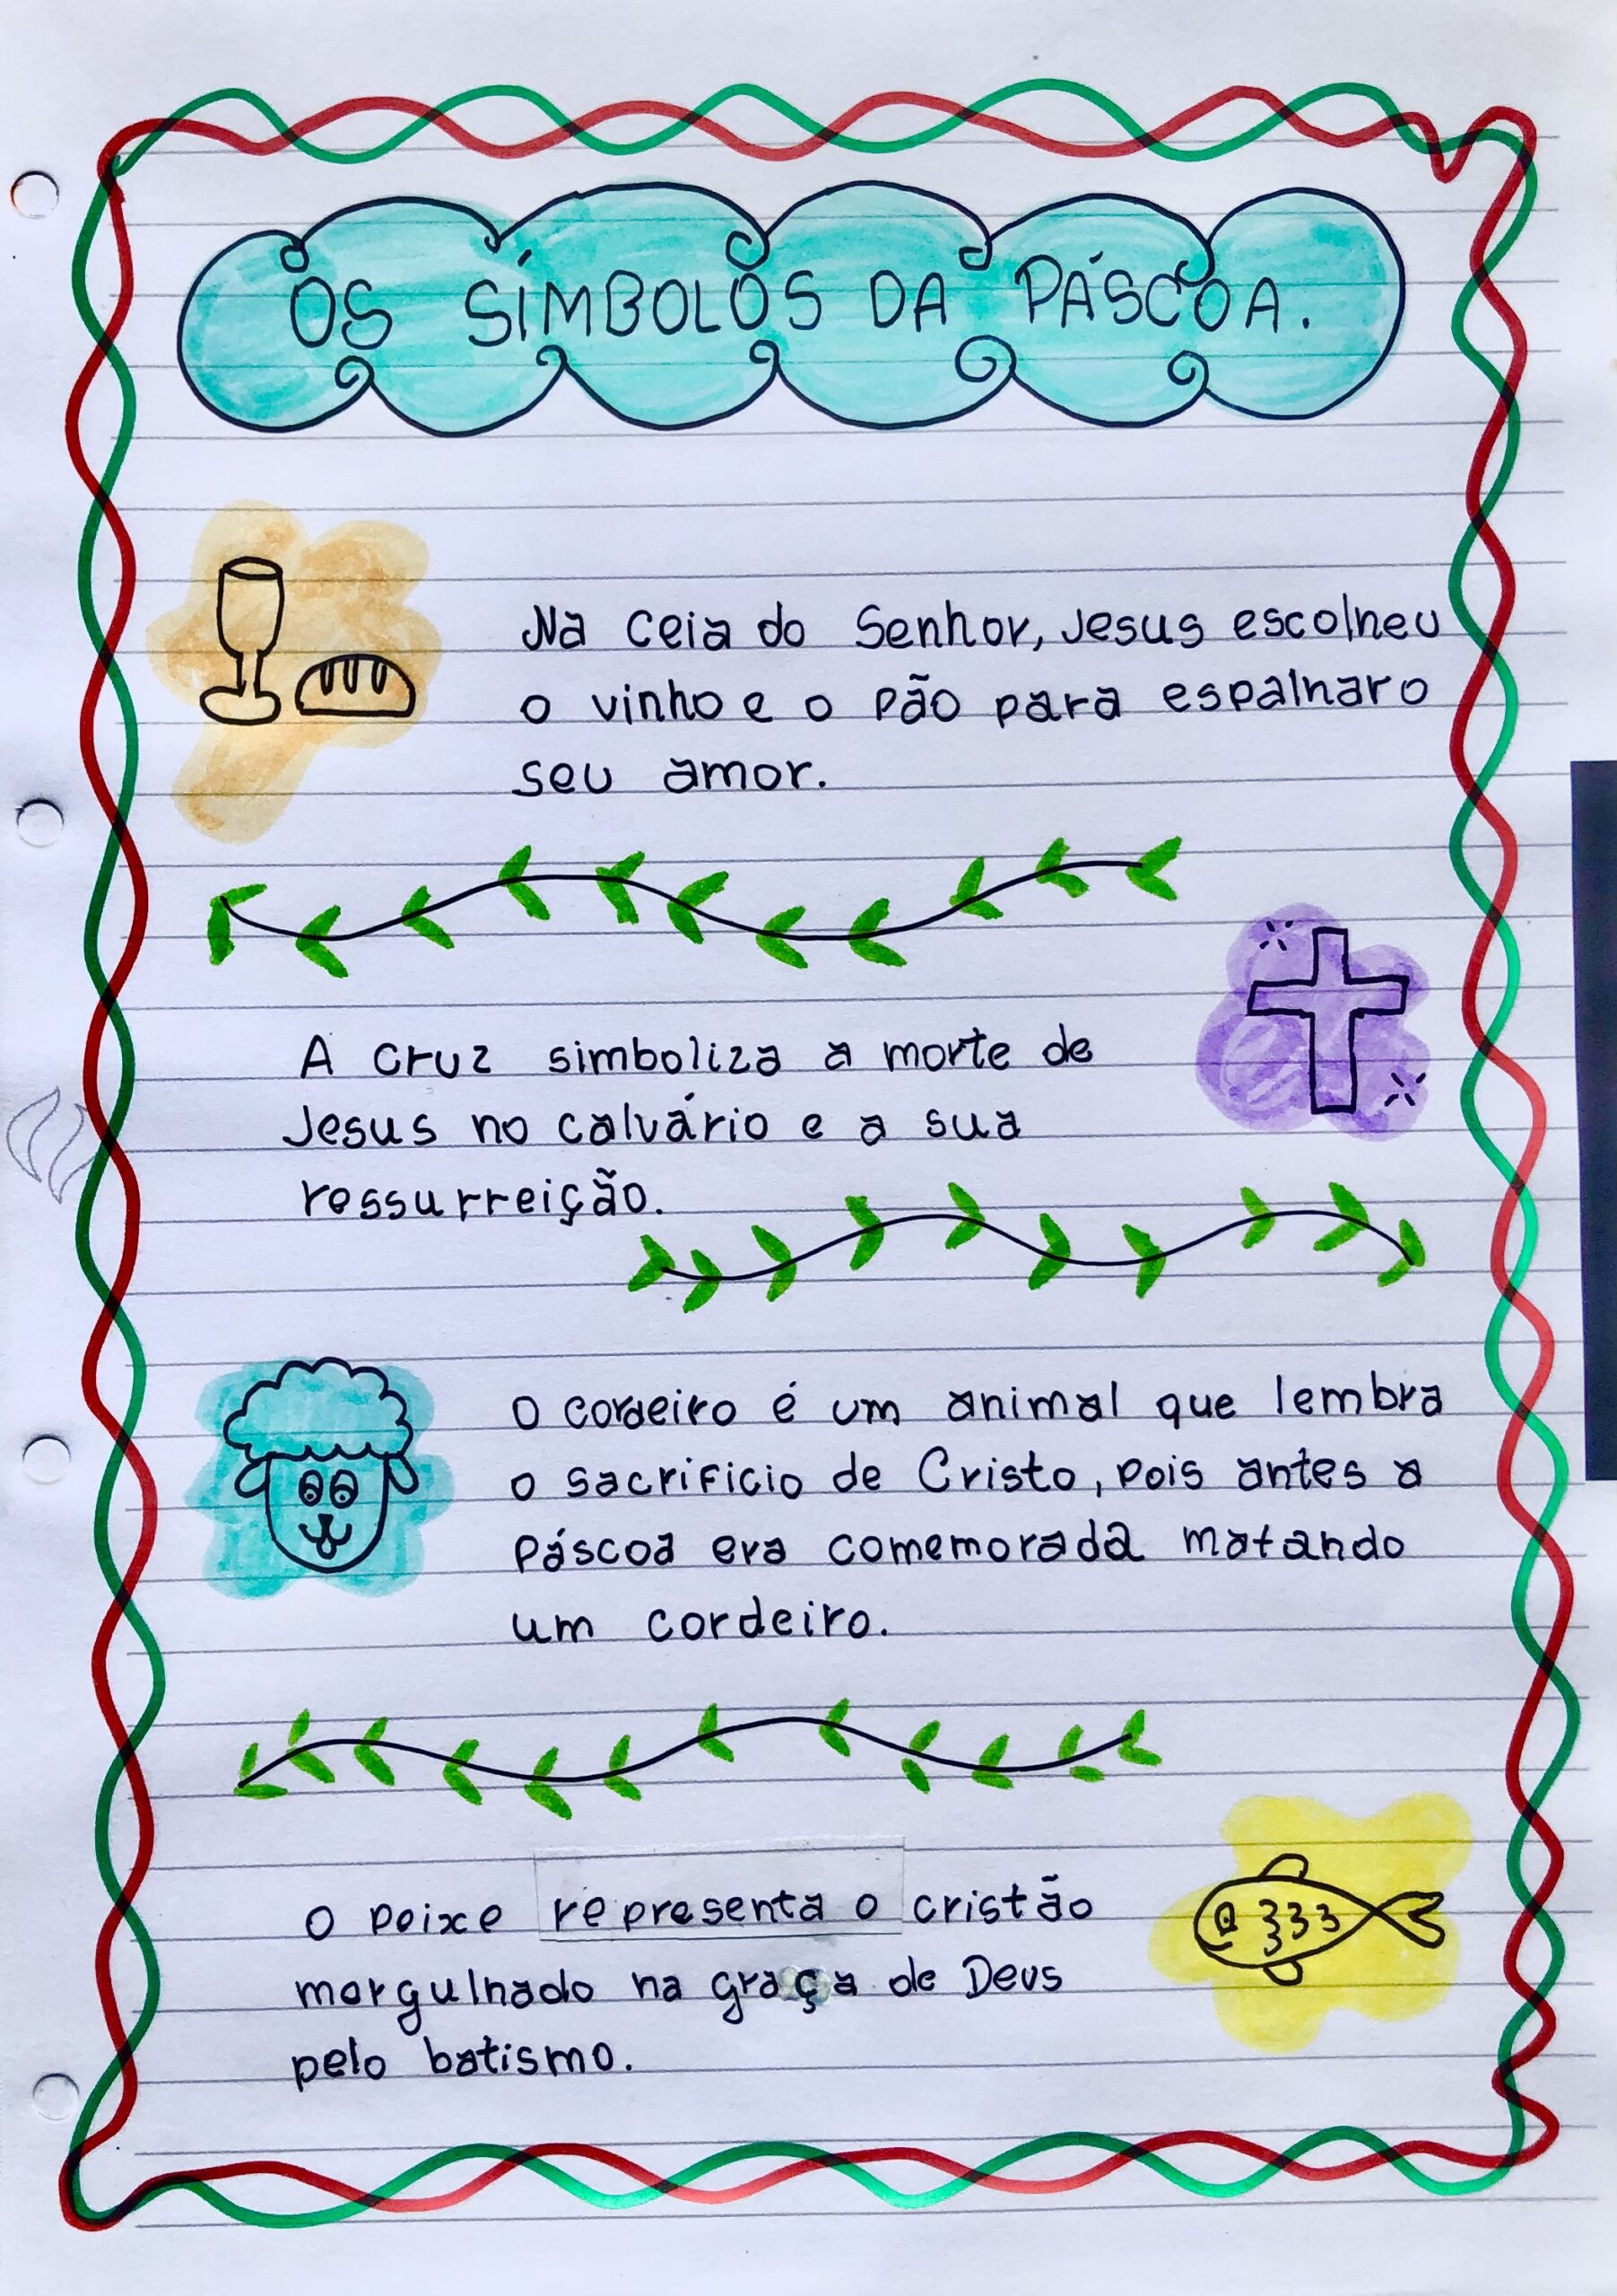 OS SÍMBOLOS DA PÁSCOA.
Na ceia do Senhor, Jesus escolheu
o vinho e o pão para espalhar o
seu amor.
A cruz simboliza a morte de
Jesus no calvário e a sua
ressurreição.
O cordeiro é um animal que lembra
o sacrificio de Cristo, pois antes a
páscoa era comemorada matando
um cordeiro.
O peixe representa o cristão
mergulhado na graça de Deus
pelo batismo.